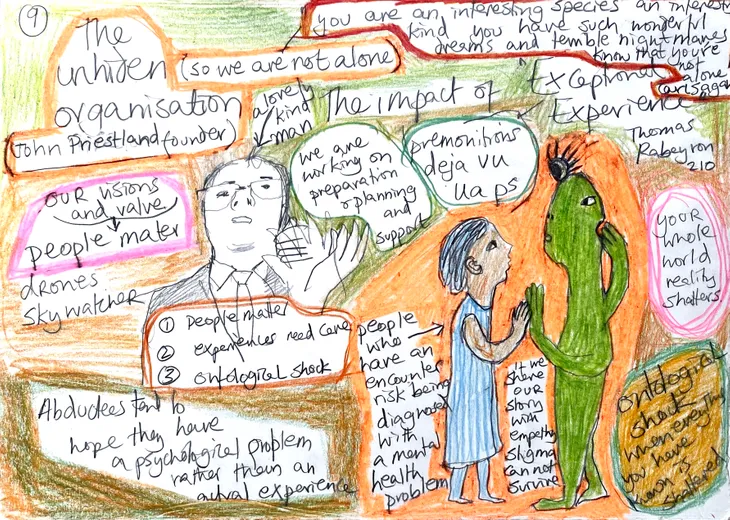 9
The
unhiden
organisation
(so we are not alone)
John Priestland founder)
you are an interesting species an interesting
kind you have such wonderful
dreams and terrible nightmares
know that you're
not
alone
Carl Sagan
a lovely
kind
man
The impact of
Exceptional
Experience
Thomas
Rabeyron
210
we are
working on
preparation
planning
and
support
premonitions
deja vu
ua ps
our visions
and valve
people mater
drones
Skywatcher
① People mater
② experiences need care
③ ontological shock
people
who
have an
encounter
risk being
diagnosed
with
a mental
health
problem
if we
share
our
story
with
empathy
stigma
cannot
survive
your
whole
world
reality
shatters
ontological
when everything
you have
is
shattered
Abductees tend to
hope they have
a psychological problem
rather than an
actual experience